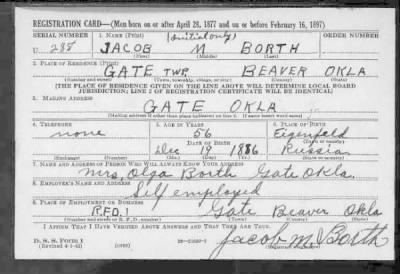 REGISTRATION CARD—(Men born on or after April 28, 1877 and on or before February 16, 1897)
SERIAL NUMBER 1. NAME (Print) (initial only) ORDER NUMBER
U 288 JACOB M BORTH
2. PLACE OF RESIDENCE (Print)
GATE TWP. BEAVER OKLA
(Number and street) (Town, township, village, or city) (County) (State)
[THE PLACE OF RESIDENCE GIVEN ON THE LINE ABOVE WILL DETERMINE LOCAL BOARD
JURISDICTION; LINE 2 OF REGISTRATION CERTIFICATE WILL BE IDENTICAL]
3. MAILING ADDRESS
GATE OKLA
(Mailing address if other than place indicated on line 2. If same insert word same)
4. TELEPHONE 5. AGE IN YEARS 6. PLACE OF BIRTH
none 56 Eigenfeld
DATE OF BIRTH (Town or county)
Dec 19 1886 Russian
(Exchange) (Number) (Mo.) (Day) (Yr.) (State or country)
7. NAME AND ADDRESS OF PERSON WHO WILL ALWAYS KNOW YOUR ADDRESS
Mrs. Olga Borth Gate Okla.
8. EMPLOYER'S NAME AND ADDRESS
Self employed
9. PLACE OF EMPLOYMENT OR BUSINESS
R.F.D. 1 Gate Beaver Okla
(Number and street or R. F. D. number) (Town) (County) (State)
I AFFIRM THAT I HAVE VERIFIED ABOVE ANSWERS AND THAT THEY ARE TRUE.
D. S. S. Form 1
(Revised 4-1-42) (over)
Jacob M. Borth